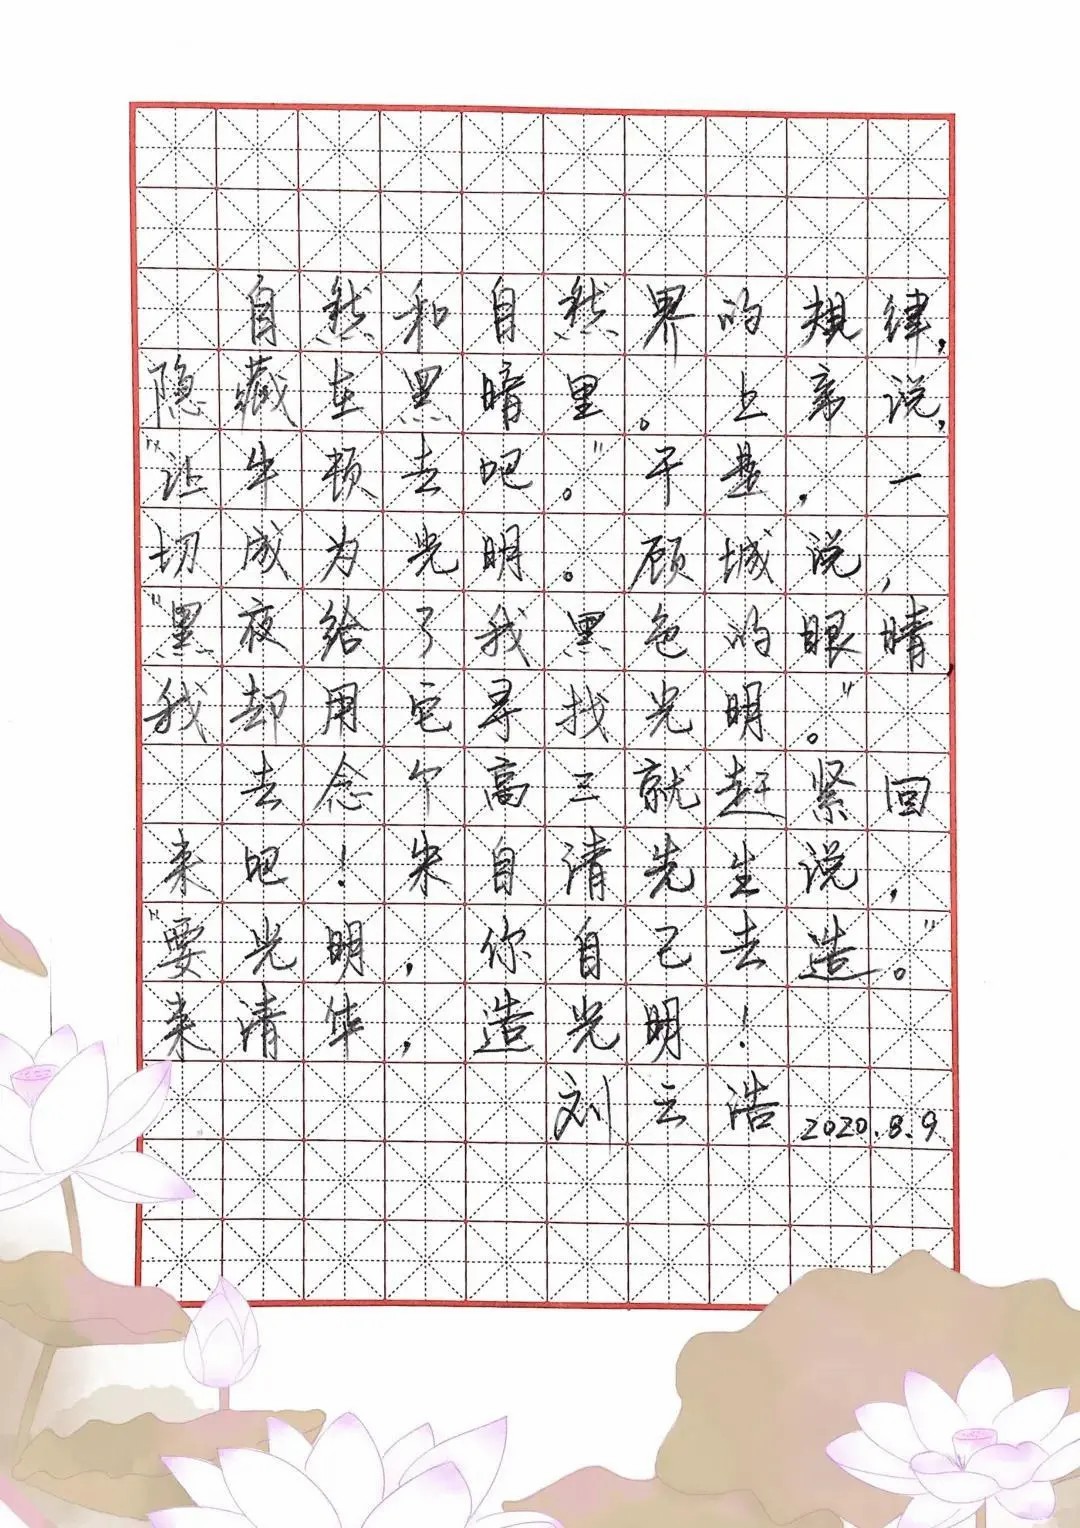 自然和自然界的规律，
隐藏在黑暗里。上帝说，
"让牛顿去吧。"于是，一
切成为光明。顾城说，
"黑夜给了我黑色的眼睛，
我却用它寻找光明。"
去念个高三就赶紧回
来吧！朱自清先生说，
"要光明，你自己去造。"
来清华，造光明！
刘云浩 2020.8.9